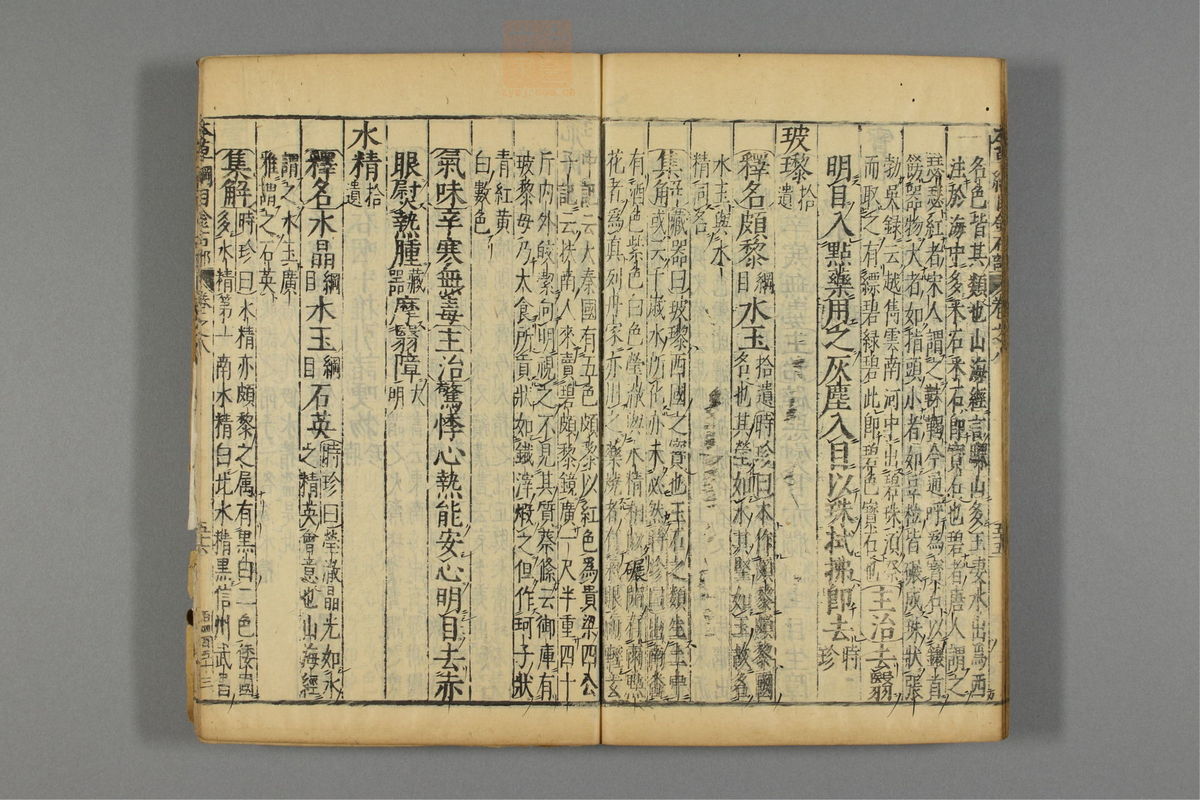 名色皆其類也山海經言騩山多玉淒水出焉西
注於海中多采石采石即寶石也碧者唐人謂之
瑟瑟紅者宋人謂之靺鞨今通呼為寶石以鑲首
飾器物大者如指頭小者如豆粒皆碾成珠狀張
勃吳錄云越雋雲南河中出碧珠須祭
而取之有縹碧綠碧此即碧色寶石也
主治去翳
明目入點藥用之灰塵入目以珠拭拂即去時珍
玻瓈拾遺
釋名頗黎綱目水玉拾遺時珍曰本作頗黎頗黎國
名也其瑩如水其堅如玉故名
水玉與水
精同名
集解藏器曰玻瓈西國之寶也玉石之類生土中
或云千歲冰所化亦未必然時珍曰出南番
有酒色紫色白色瑩澈與水精相似碾開有雨點
花者為真列丹家亦用之藥燒者有氣眼而輕玄
中記云大秦國有五色頗黎以紅色為貴梁四公
子記云扶南人來賣碧頗黎鏡廣一尺半重四十
斤內外皎潔向明視之不見其質蔡絛云御庫有
玻瓈母乃大食所貢狀如鐵滓煅之但作珂子狀
青紅黃
白數色
氣味辛寒無毒主治驚悸心熱能安心明目去赤
眼熨熱腫藏器摩翳障大明
水精拾遺
釋名水晶綱目水玉綱目石英時珍曰瑩澈晶光如水
之精英會意也山海經
謂之水玉廣
雅謂之石英
集解時珍曰水精亦頗黎之属有黑白二色倭國
多水精第一南水精白北水精黑信州武昌
本草綱目金石部 卷之八 五十六